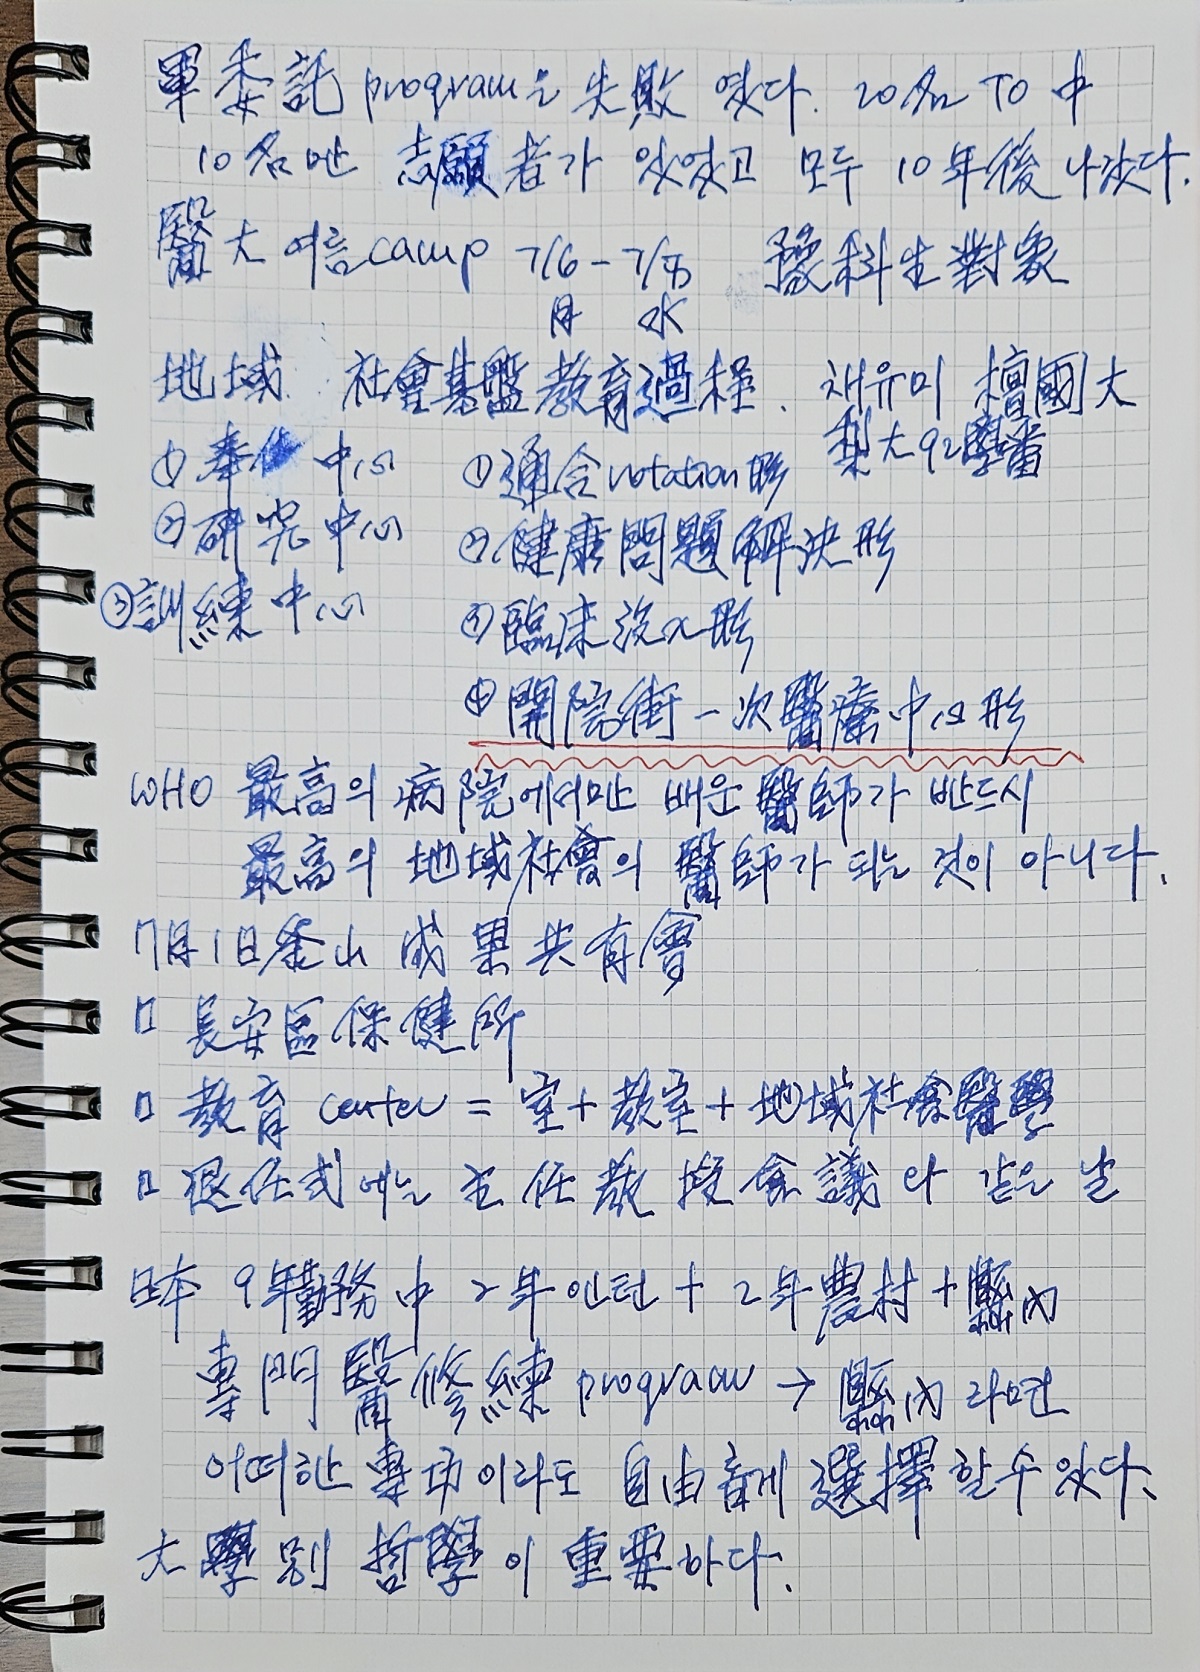 軍委託 program은 失敗였다. 20名 TO 中
10名만 志願者가 있었고 모두 10年後 나갔다.
醫大 여름camp 7/6-7/8 豫科生對象
月 水
地域 社會基盤敎育過程. 채유미 檀國大
梨大92學番
① 奉仕中心 ① 通合rotation形
② 硏究中心 ② 健康問題解決形
③ 訓練中心 ③ 臨床役割形
④ 開院街一次醫療中心形
WHO 最高의 病院에서만 배운 醫師가 반드시
最高의 地域社會의 醫師가 되는 것이 아니다.
7月1日釜山 成果共有會
□ 長安區保健所
□ 敎育 center = 室+敎室+地域社會醫學
□ 退任式에는 主任敎授會議와 같은 날
日本 9年勤務中 2年인턴 + 2年農村 + 縣內
專門醫修練 program → 縣內라면
어떠한 專功이라도 自由롭게 選擇할 수 있다.
大學別 哲學이 重要하다.